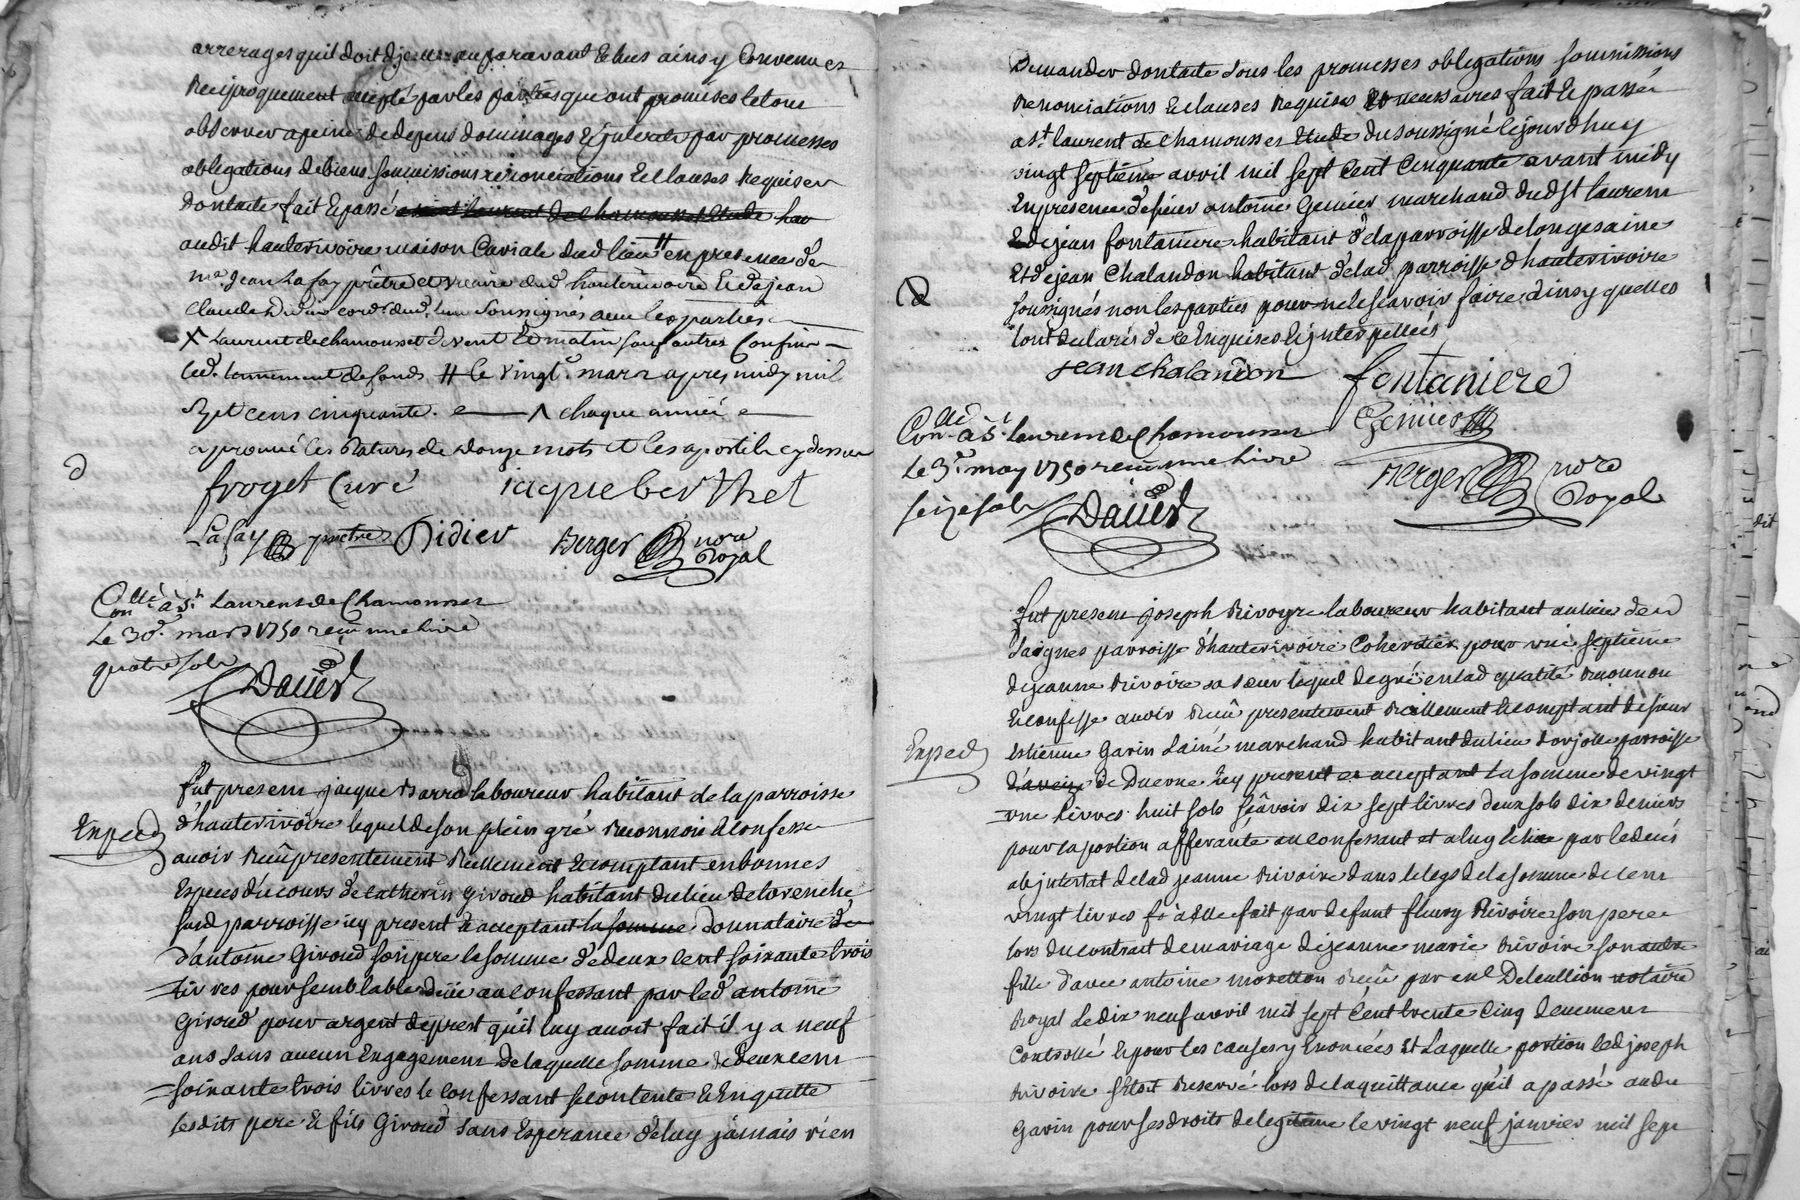 arrerages quil doit dejeus auparavant Et hus ainsy Convenu et
Reciproquement accepté par les parties qui ont promises letout
observer apeine de depens dommages Et jnterets par promesses
obligations de biens soumissions renonciations Et Clauses Requises
dontacte fait Et passé a saint laurent de Chamousset Etude
audit hauterivoire maison Curiale dud lieu # en presence de
me Jean Lafay prêtre et vicaire dud hauterivoire Et de jean
claude Didier cordr dud lieu soussignés avec les parties
X Laurent de chamousset devent Et matin sauf autres Confins
led. tennement de fonds # le vingt mars apres midy mil
Sept cens cinquante. ^ chaque année
aprouvé les Ratures de Donze mots et les apostile cydessus
froget Curé jaque berthet
Lafay prêtre Didier Berger nore Royal
Con.llé à St Laurens de Chamousset
Le 30e mars 1750 reçu une livre
quatre sols
Daüer
fut present jacque Barra laboureur habitant de la parroisse
Exped
d'hauterivoire lequel de son plein gré Reconnoi Et Confesse
avoir Reçû presentement Reellement Et comptant en bonnes
Especes du cours de Catherin Giroud habitant du lieu de lavenche
susd parroisse icy present Et acceptant la somme donnataire de
d'antoine Giroud son pere la somme de deux Cent soixante trois
livres pour semblable düe au Confessant par led antoine
Giroud pour argent de prest quil luy avoit fait il y a neuf
ans sans aucun Engagement de laquelle somme de deux cent
soixante trois livres le Confessant se contente Et En quitte
lesdits pere Et fils Giroud sans Esperance de luy jamais rien
Demander dontacte sous les promesses obligations soumissions
Renonciations Et clauses Requises Et necessaires fait Et passé
a St. laurent de Chamousset Etude du soussigné le jourdhuy
vingt septieme avril mil sept Cent Cinquante avant midy
En presence de sieur antoine Genier marchand dud St laurent
Et de jean fontaniere habitant de la parroisse de longesaine
Et de jean Chalandon habitant de lad parroisse d'hauterivoire
soussignés non les parties pour ne le scavoir faire ainsy quelles
lont declarés de ce Enquises Et jnterpellées
jean chalandon fontaniere
Genier
Con.llé à St. Laurens de Chamousset
Le 3e may 1750 reçu une livre
seize sols Daüer
Berger nore Royal
fut present joseph Rivoyre laboureur habitant au lieu de
Saignes parroisse d'hauterivoire Coheritier pour une septieme
de jeanne Rivoire sa sœur lequel de gré en lad qualité Reconnoi
Et confesse avoir Reçû presentement Reellement Et comptant de sieur
Exped
Estienne Garin Lainé marchand habitant du lieu dorjolle parroisse
d'aveize de Duerne icy present et acceptant la somme de vingt
une livres huit sols sçâvoir dix sept livres deux sols dix deniers
pour la portion afferante au confessant et a luy Echüe par le deces
abjntestat de lad jeanne Rivoire dans le legs de la somme de cent
vingt livres à Elle fait par defunt fleury Rivoire son pere
lors du contrait de mariage de jeanne marie Rivoire son autre
fille d'avec antoine moretton Reçû par me Deleullion notaire
Royal le dix neuf avril mil sept Cent trente Cinq deuement
Controllé Et pour les causes y Enoncées Et Laquelle portion led joseph
Rivoire s'étoit Reservé lors de la quittance qu'il a passé audit
Garin pour ses droits de legitime le vingt neuf janvier mil sept